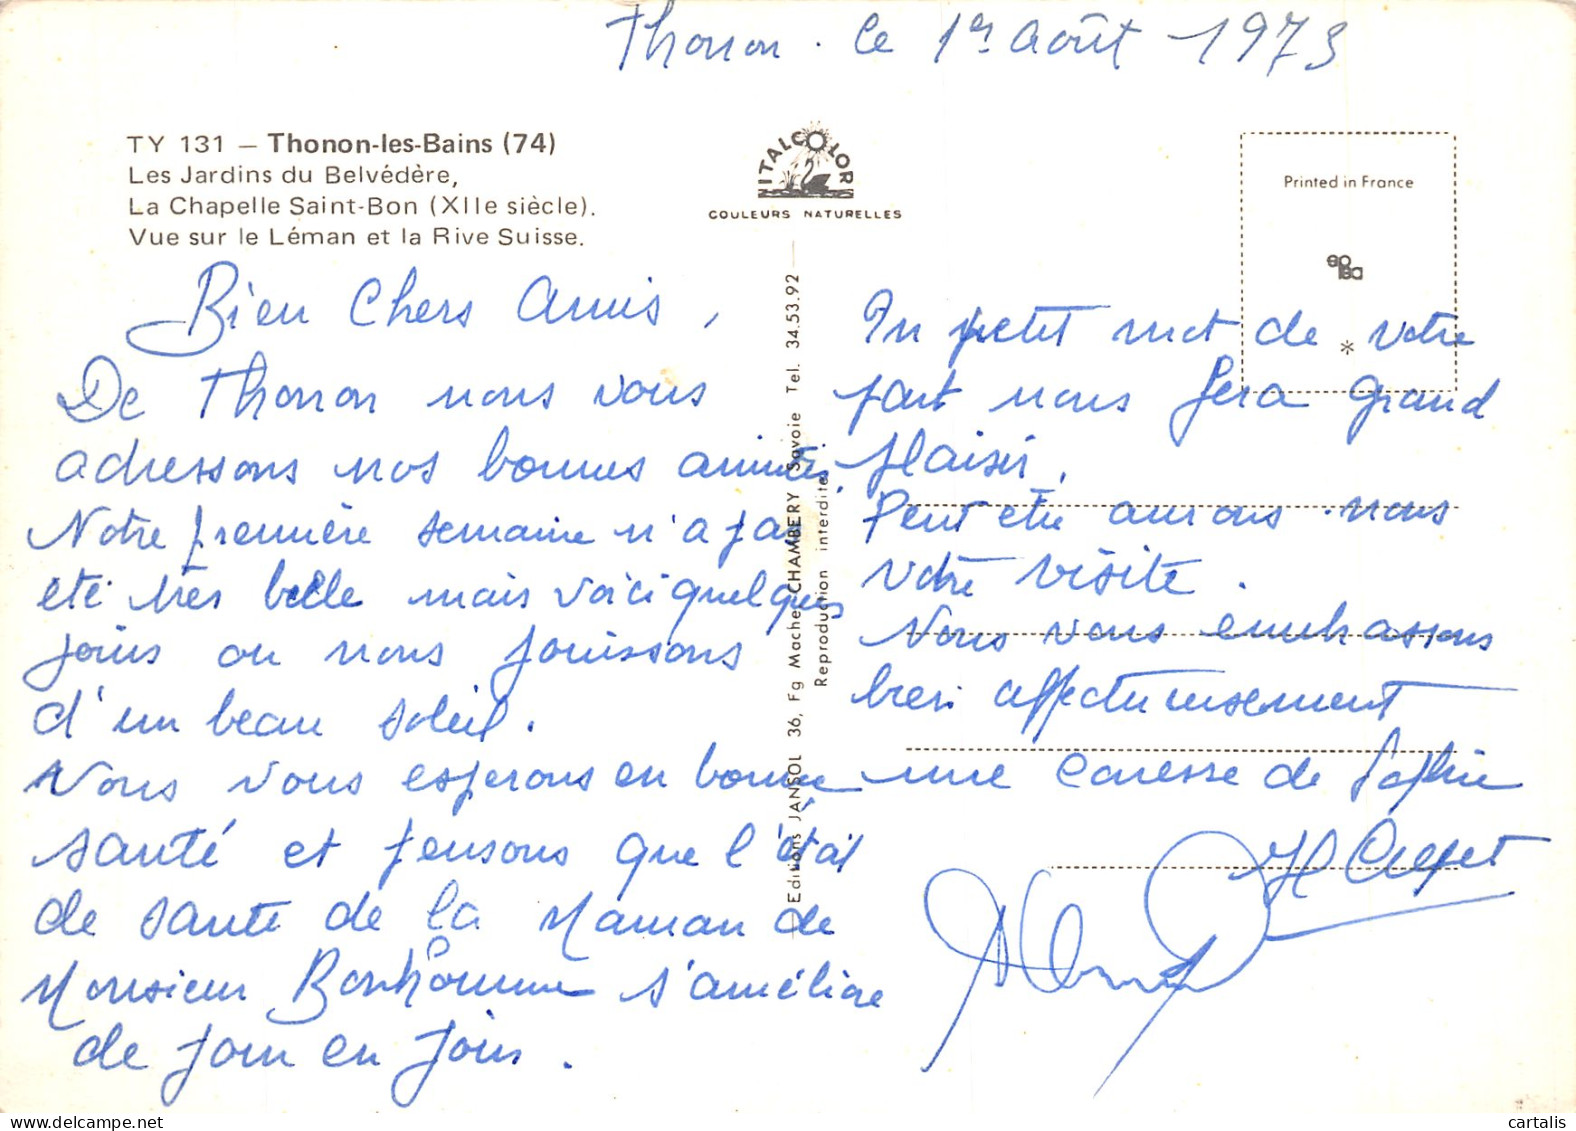 Thonon. le 1er août 1973
TY 131 – Thonon-les-Bains (74)
Les Jardins du Belvédère,
La Chapelle Saint-Bon (XIIe siècle).
Vue sur le Léman et la Rive Suisse.
VITALCOLOR
COULEURS NATURELLES
Printed in France
*
Editions JANSOL 36, Fg Mache CHAMBERY Savoie Tel. 34.53.92
Reproduction interdite
Bien Chers Amis,
De Thonon nous vous
adressons nos bonnes amitiés.
Notre première semaine n'a pas
été très belle mais voici quelques
jours ou nous jouissons
d'un beau soleil.
Nous vous espérons en bonne
santé et pensons que l'état
de santé de la Maman de
Monsieur Bonhomme s'améliore
de jour en jour.
Un petit mot de votre
part nous fera grand
plaisir.
Peut etre aurons-nous
votre visite.
Nous vous embrassons
bien affectueusement
une caresse de Sophie
cartalis